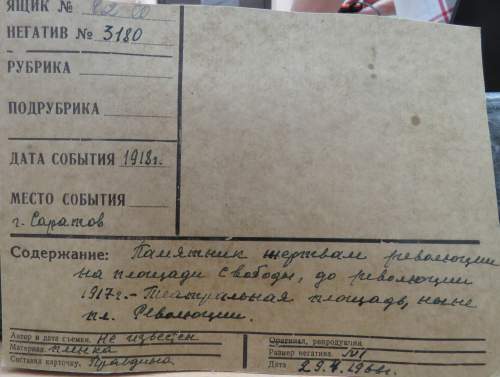 ЯЩИК №
НЕГАТИВ № 3180
РУБРИКА
ПОДРУБРИКА
ДАТА СОБЫТИЯ 1918г.
МЕСТО СОБЫТИЯ
г. Саратов
Содержание: Памятник жертвам революции
на площади Свободы, до революции
1917г. - Театральная площадь, ныне
пл. Революции.
Автор и дата съемки. Не известен
Материал. пленка
Составил карточку. Правдина
Оригинал, репродукция.
Размер негатива. №1
Дата 29.4.196